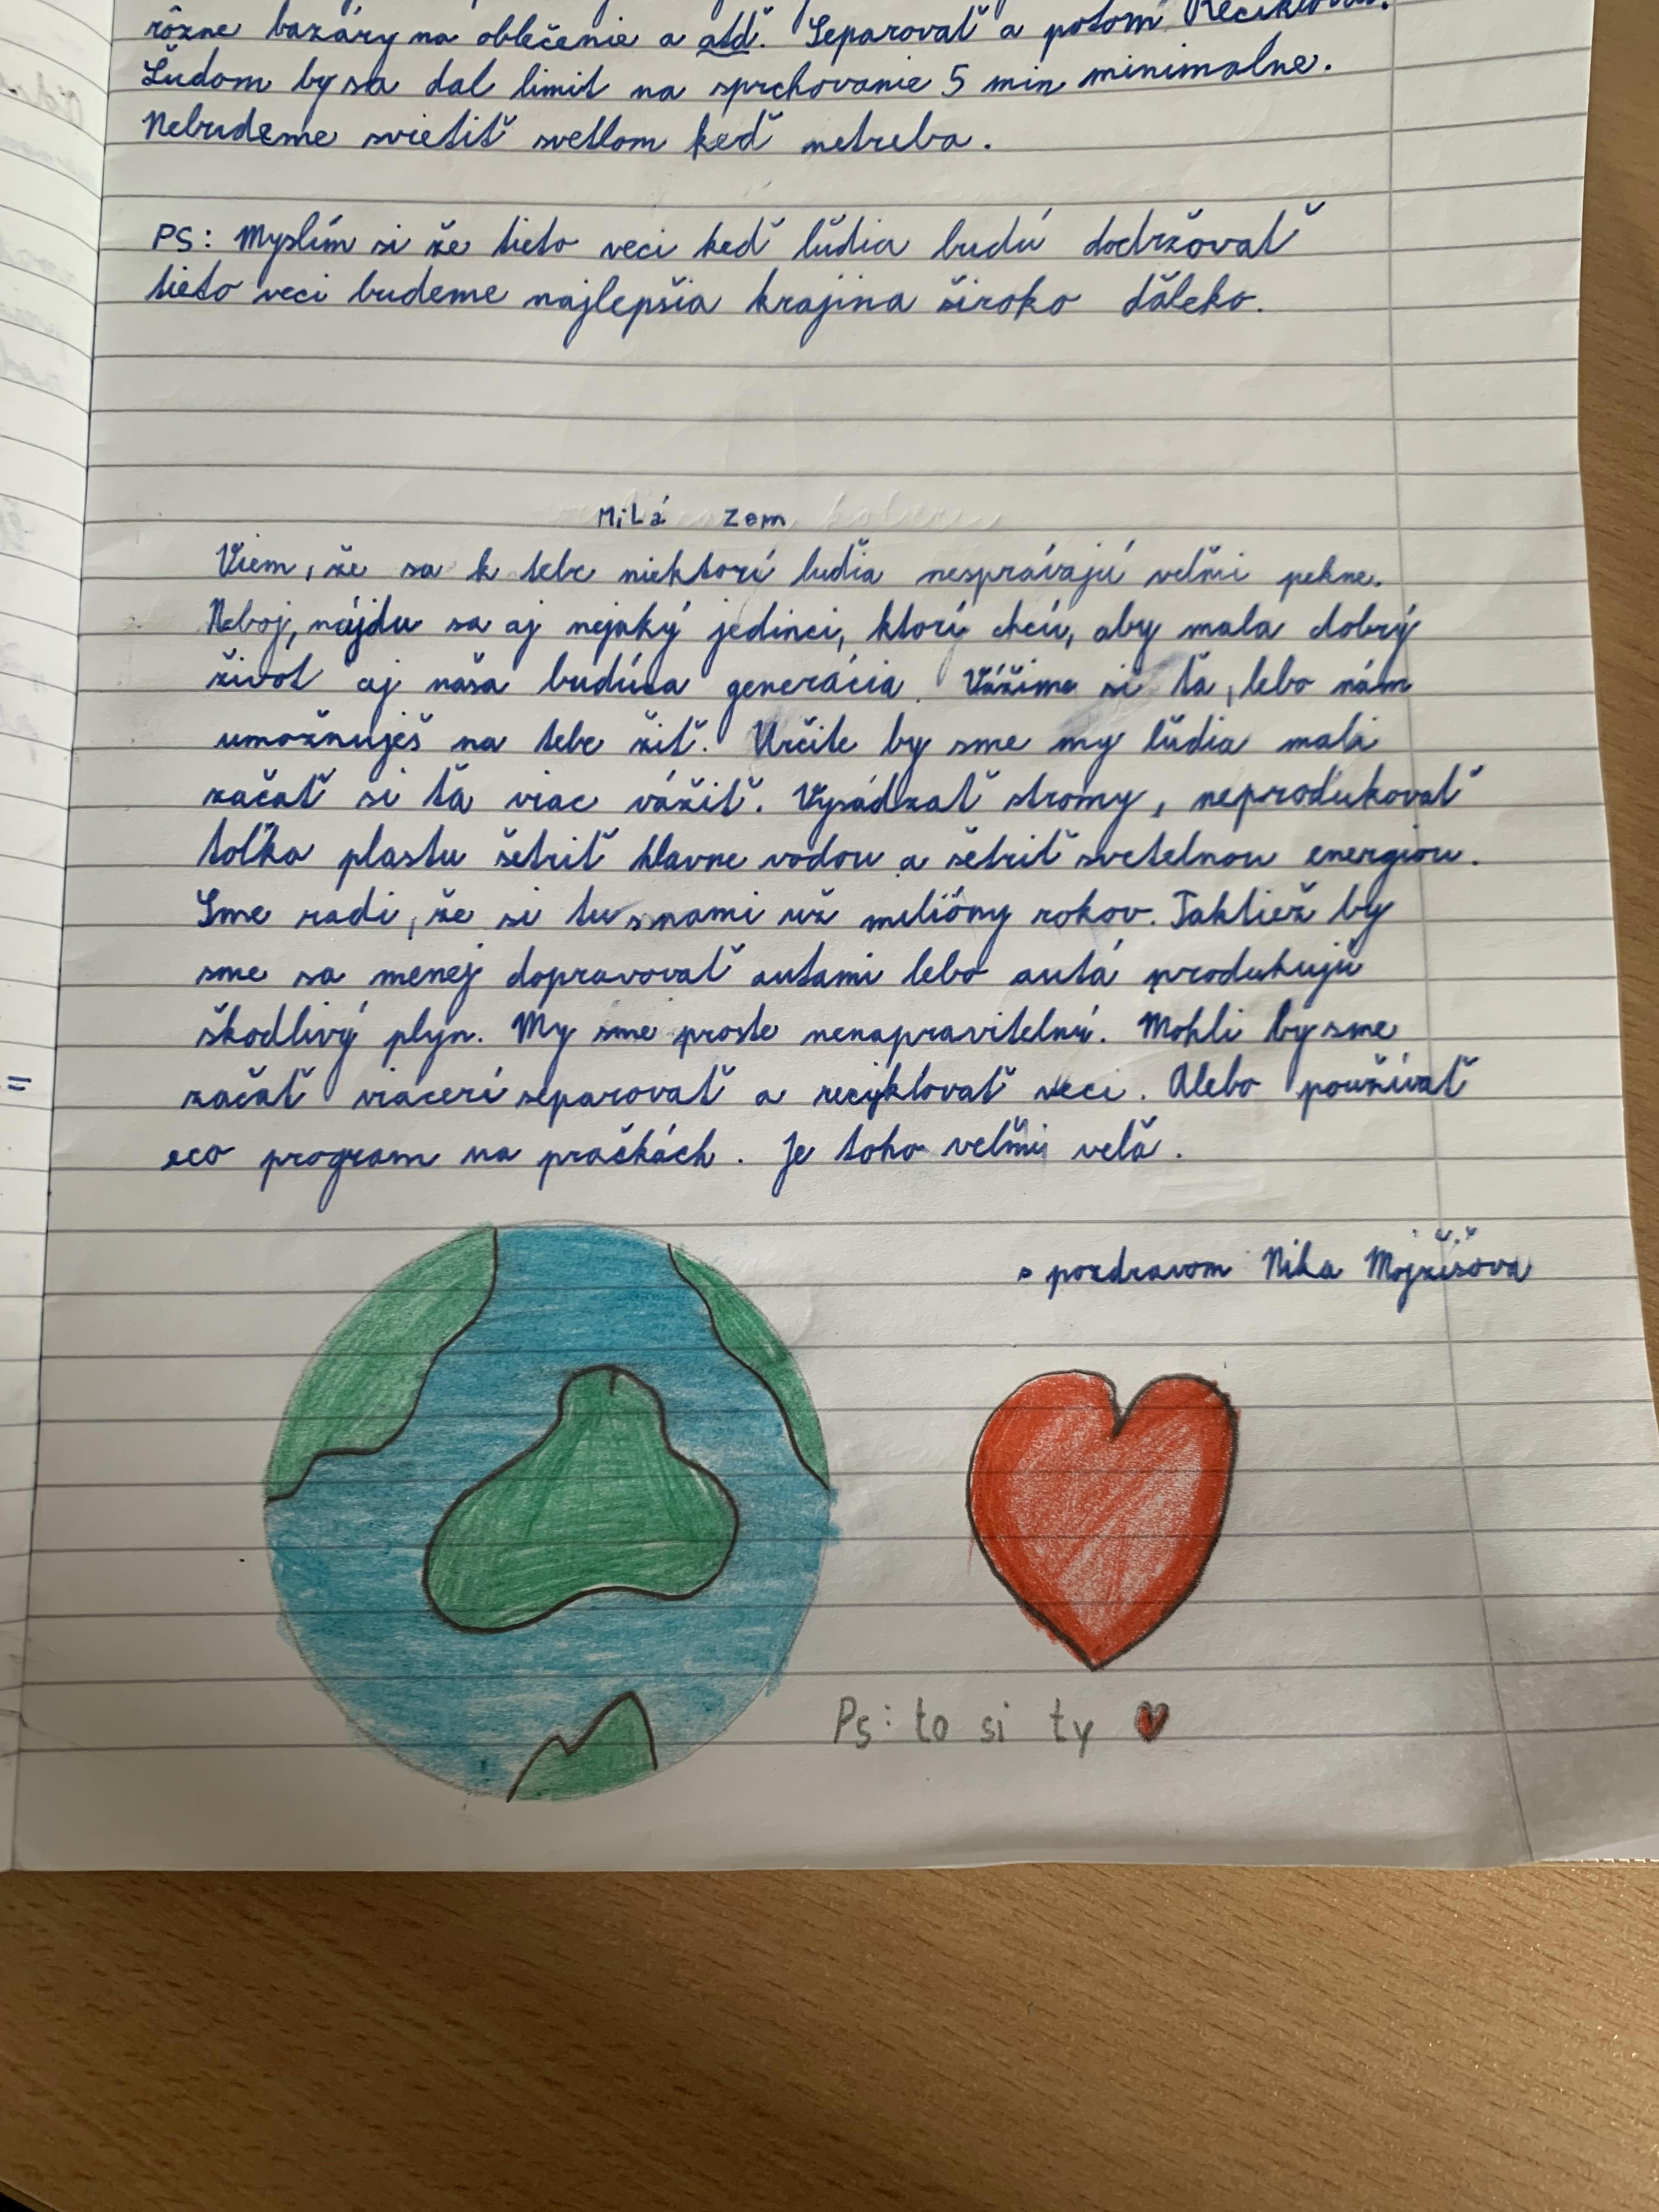 rôzne bazáry na oblečenie a atď. Separovať a potom Reciklovať.
Ľuďom by sa dal limit na sprchovanie 5 min minimalne.
Nebudeme svietiť svetlom keď netreba.
PS: Myslím si že tieto veci keď lúďia budú dodržovať
tieto veci budeme najlepšia krajina široko ďáleko.
Milá Zem
Viem, že sa k tebe niektorí luďia nesprávajú veľmi pekne.
Neboj, nájdu sa aj nejaký jedinci, ktorí chcú, aby mala dobrý
život aj naša budúca generácia. Vážime si ťa, lebo nám
umožnuješ na tebe žiť. Určite by sme my ľúdia mali
začať si ťa viac vážiť. Vysádzať stromy, neprodukovať
toľko plastu šetriť hlavne vodou a šetriť svetelnou energiou.
Sme radi, že si tu s nami už milióny rokov. Taktiež by
sme sa menej dopravovať autami lebo autá produkujú
škodlivý plyn. My sme proste nenapravitelný. Mohli by sme
začať viacerí separovať a recyklovať veci. Alebo používať
eco program na pračkách. Je toho veľmi velä.
s pozdravom Nika Mojžišova
Ps: to si ty ♥